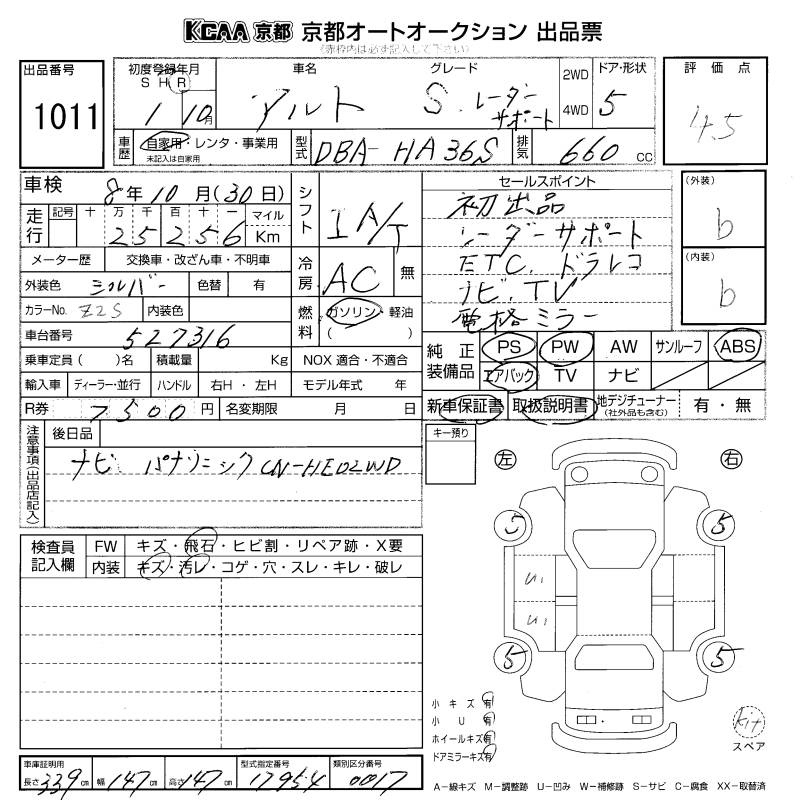 KCAA 京都 京都オートオークション 出品票
(赤枠内は必ず記入して下さい)
出品番号
1011
初度登録年月
S H R
1 10月
車名
アルト
グレード
S. レーダーサポート
2WD
4WD
ドア・形状
5
評価点
4.5
車歴
自家用・レンタ・事業用
未記入は自家用
型式
DBA-HA36S
排気
660 cc
車検
8年10月(30日)
走行
記号 十 万 千 百 十 一 マイル
25256 Km
シフト
IA/T
セールスポイント
初出品
レーダーサポート
ETC. ドラレコ
ナビ. TV
電格ミラー
(外装)
b
(内装)
b
メーター歴 交換車・改ざん車・不明車
外装色 シルバー 色替 有
冷房 AC 無
カラーNo. Z2S 内装色
燃料 ガソリン・軽油
( )
車台番号 527316
純正装備品
PS PW AW サンルーフ ABS
エアバック TV ナビ
乗車定員( )名 積載量 Kg NOX 適合・不適合
輸入車 ディーラー・並行 ハンドル 右H・左H モデル年式 年
R券 7500円 名変期限 月 日
新車保証書 取扱説明書 地デジチューナー(社外品も含む) 有・無
注意事項(出品店記入)
後日品
ナビ パナソニック CN-HE02WD
キー預り
左 右
5 5
U1
U1
5 5
検査員記入欄
FW キズ・飛石・ヒビ割・リペア跡・X要
内装 キズ・汚レ・コゲ・穴・スレ・キレ・破レ
小キズ 有
小U 有
ホイールキズ 有
ドアミラーキズ 有
kit
スペア
車庫証明用
長さ 339cm 幅 147cm 高さ 147cm
型式指定番号
17954
類別区分番号
0017
A-線キズ M-調整跡 U-凹み W-補修跡 S-サビ C-腐食 XX-取替済